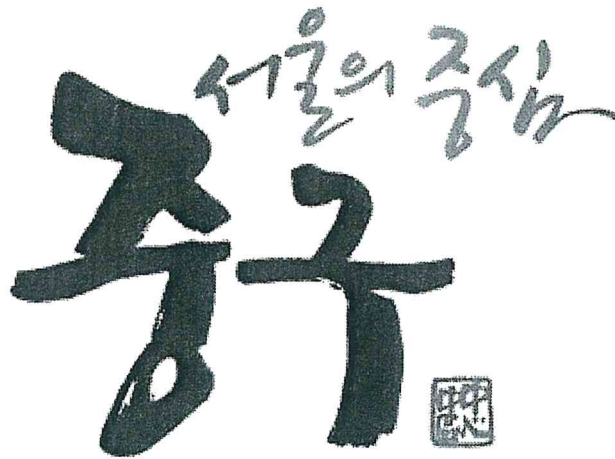 서울의 중심
중구